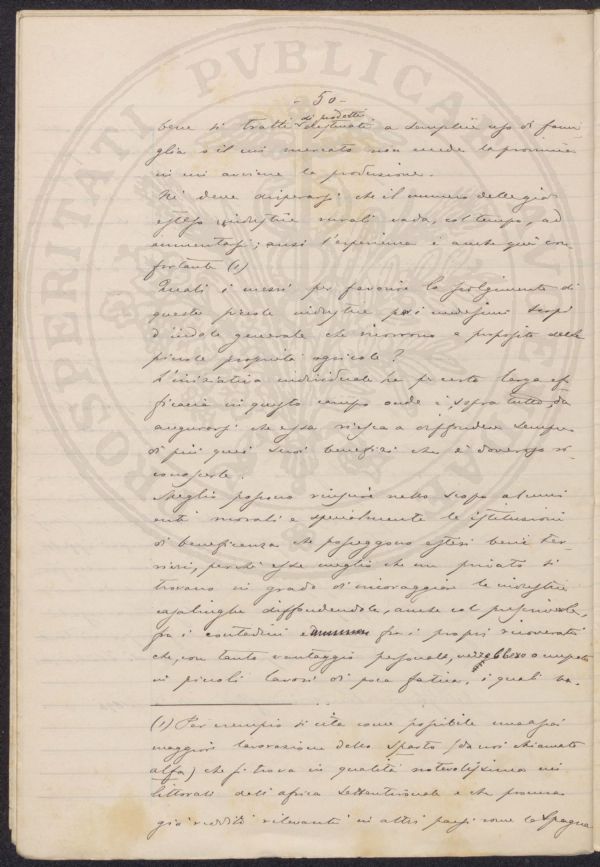 - 50 -
di prodotti
bene si tratti destinati a semplice uso di fami
glia o il cui mercato non ecceda la provincia
in cui avviene la produzione.
Nè deve disperarsi che il numero delle già
estese industrie rurali vada, col tempo, ad
aumentarsi; anzi l'esperienza è anche qui con
fortante (1)
Quali i mezzi per favorire lo svolgimento di
queste piccole industrie i medesimi scopi
d'indole generale che ricorrono a proposito delle
piccole proprietà agricole?
L'iniziativa individuale ha di certo larga ef
ficacia in questo campo onde è sopra tutto da
augurarsi che essa riesca a diffondere sempre
di più quei suoi benefizi che è doveroso ri-
conoscerle.
Meglio possono riuscire nello scopo alcuni
enti morali e specialmente le istituzioni
di beneficenza che posseggono estesi beni ter-
rieri, perchè esse meglio che un privato si
trovano in grado di incoraggiare le industrie
casalinghe diffondendole, anche col
fra i contadini e fra i propri ricoverati
che, con tanto vantaggio personale, verrebbero occupati
in piccoli lavori di poca fatica, i quali va-
(1) Per esempio si cita come possibile una assai
maggiore lavorazione dello sparto (da noi chiamato
alfa) che si trova in qualità notevolissima nei
littorali dell'africa settentrionale e che procura
già redditi rilevanti in altri paesi come la Spagna